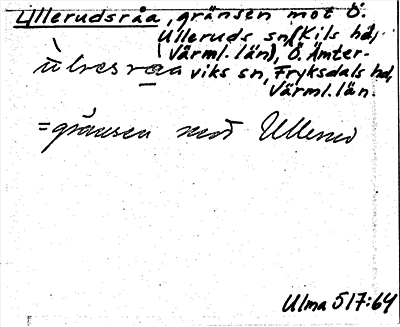 Ullerudsråa, gränsen mot Ö.
Ulleruds sn (Kils hd,
Värml. län), Ö. Ämter-
viks sn, Fryksdals hd,
Värml. län.
=gränsen mot Ullerud
Ulma 517:64